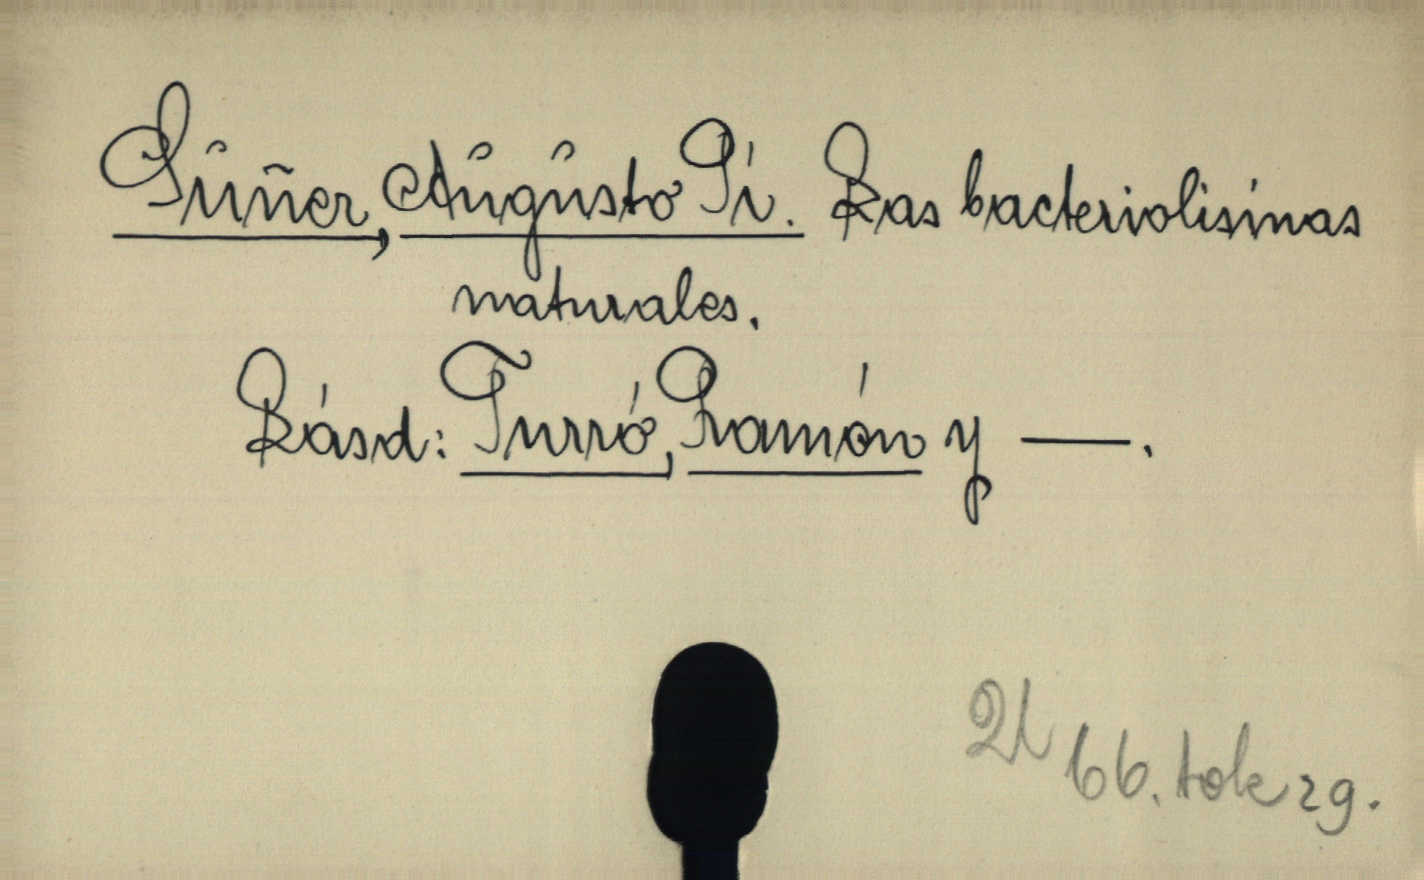 Suñer, Augusto Pí. Las bacteriolisinas
naturales.
Lásd: Turró, Ramón y —.
66. tok 29.